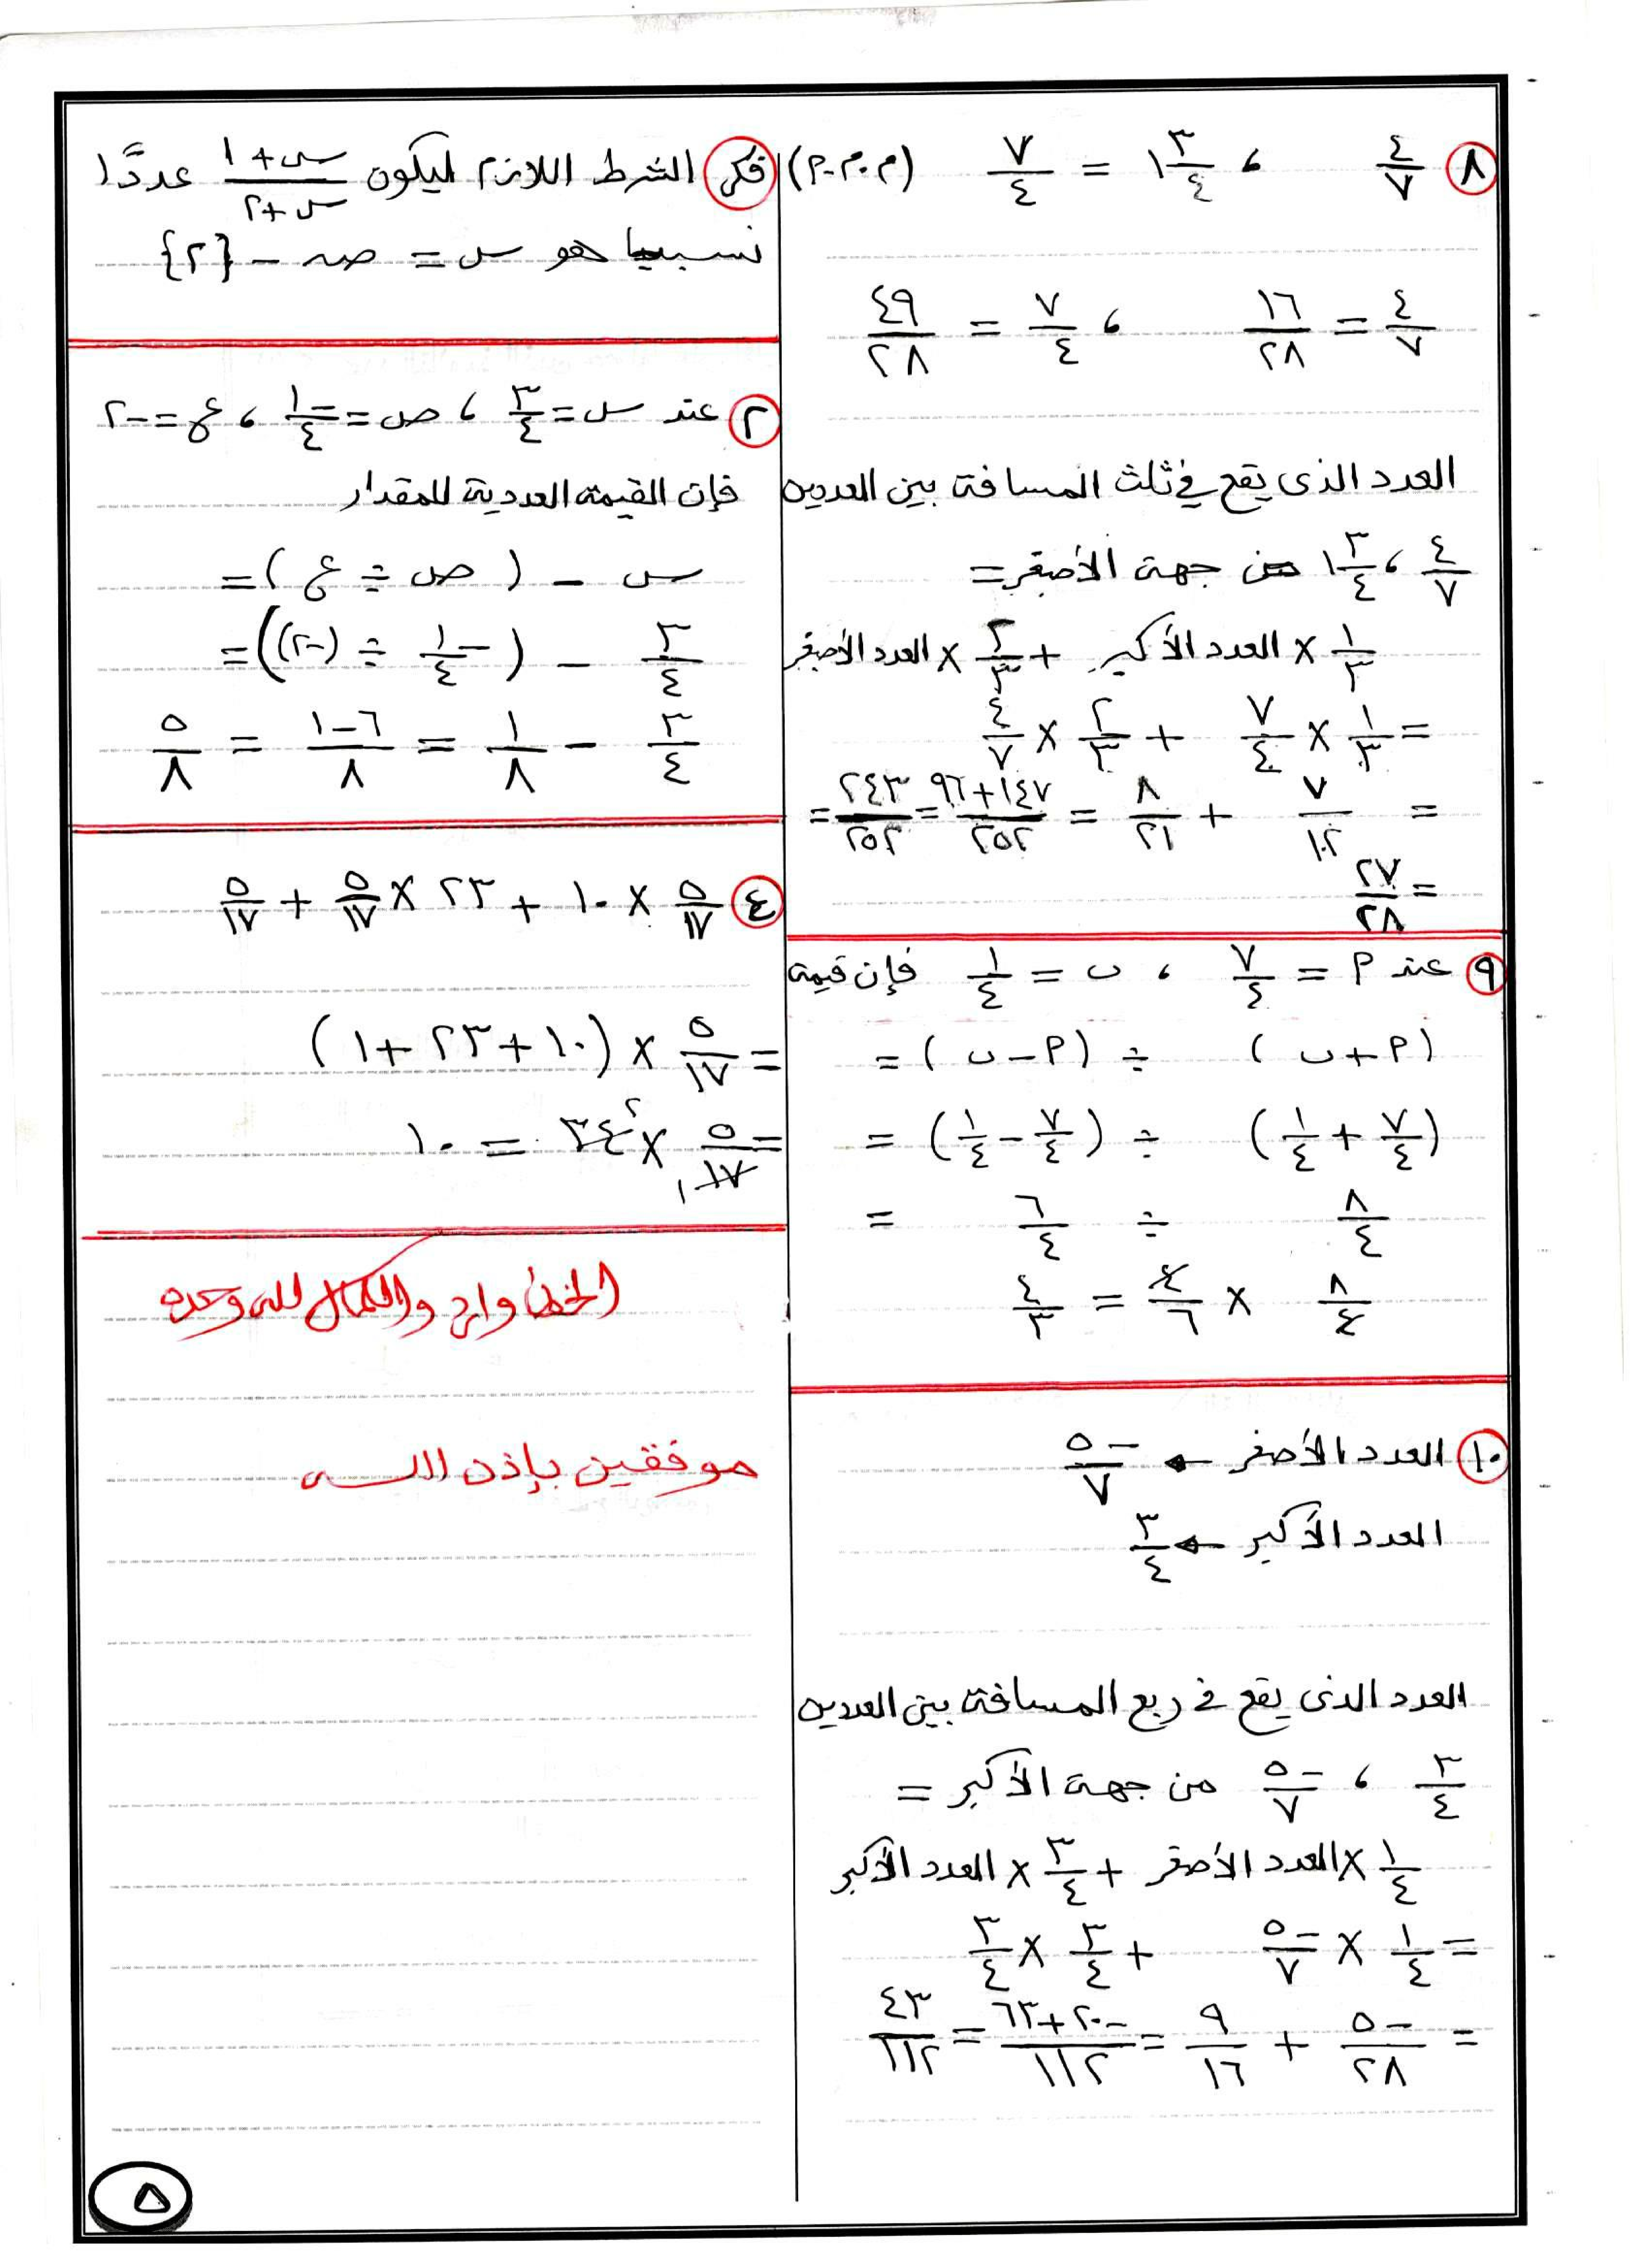 ٨ ٤/٧ ، ١ ٣/٤ = ٧/٤ (م.م.م)
٤/٧ = ١٦/٢٨ ، ٧/٤ = ٤٩/٢٨
العدد الذى يقع فى ثلث المسافة بين العددين
٤/٧ ، ١ ٣/٤ من جهة الأصغر =
١/٣ × العدد الأكبر + ٢/٣ × العدد الأصغر
= ١/٣ × ٧/٤ + ٢/٣ × ٤/٧
= ٧/١٢ + ٨/٢١ = ١٤٧+٩٦/٢٥٢ = ٢٤٣/٢٥٢ =
= ٢٧/٢٨
٩ عند م = ٧/٤ ، ب = ١/٤ فإن قيمة
(م + ب) ÷ (م - ب) =
(٧/٤ + ١/٤) ÷ (٧/٤ - ١/٤) =
٨/٤ ÷ ٦/٤ =
٨/٤ × ٤/٦ = ٤/٣
١٠ العدد الأصغر ← -٥/٧
العدد الأكبر ← ٣/٤
العدد الذى يقع فى ربع المسافة بين العددين
٣/٤ ، -٥/٧ من جهة الأكبر =
١/٤ × العدد الأصغر + ٣/٤ × العدد الأكبر
= ١/٤ × -٥/٧ + ٣/٤ × ٣/٤
= -٥/٢٨ + ٩/١٦ = -٢٠+٦٣/١١٢ = ٤٣/١١٢
فكر الشرط اللازم ليكون س+١/س+٢ عددًا
نسبيا هو س = صـ - {٢}
٢ عند س = ٣/٤ ، ص = -١/٤ ، ع = -٢
فإن القيمة العددية للمقدار
س - (ص ÷ ع) =
٣/٤ - (-١/٤ ÷ (-٢)) =
٣/٤ - ١/٨ = ٦-١/٨ = ٥/٨
٤ ٥/١٧ × ١٠ + ٢٣ × ٥/١٧ + ٥/١٧
= ٥/١٧ × (١٠ + ٢٣ + ١)
= ٥/١٧ × ٣٤ = ١٠
الخطأ وارد والكمال لله وحده
موفقين بإذن الله
٥